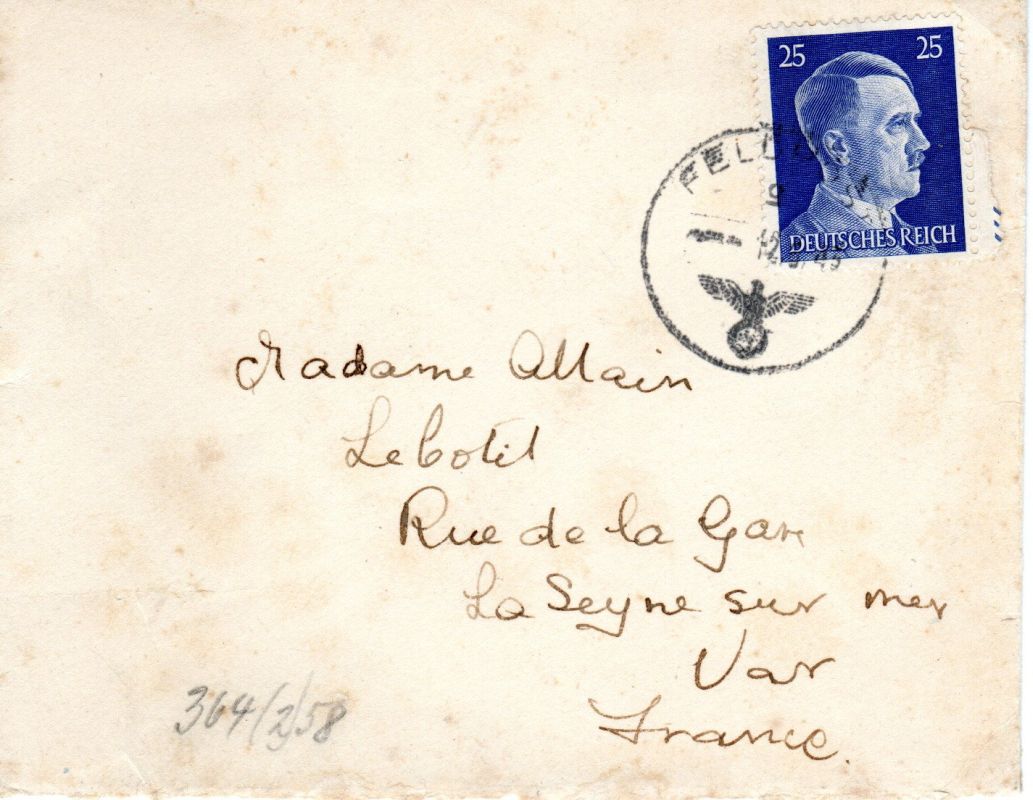 25 25
DEUTSCHES REICH
FELDP
Madame Allain
Lebotil
Rue de la Gare
La Seyne sur mer
Var
France.
364/2/58